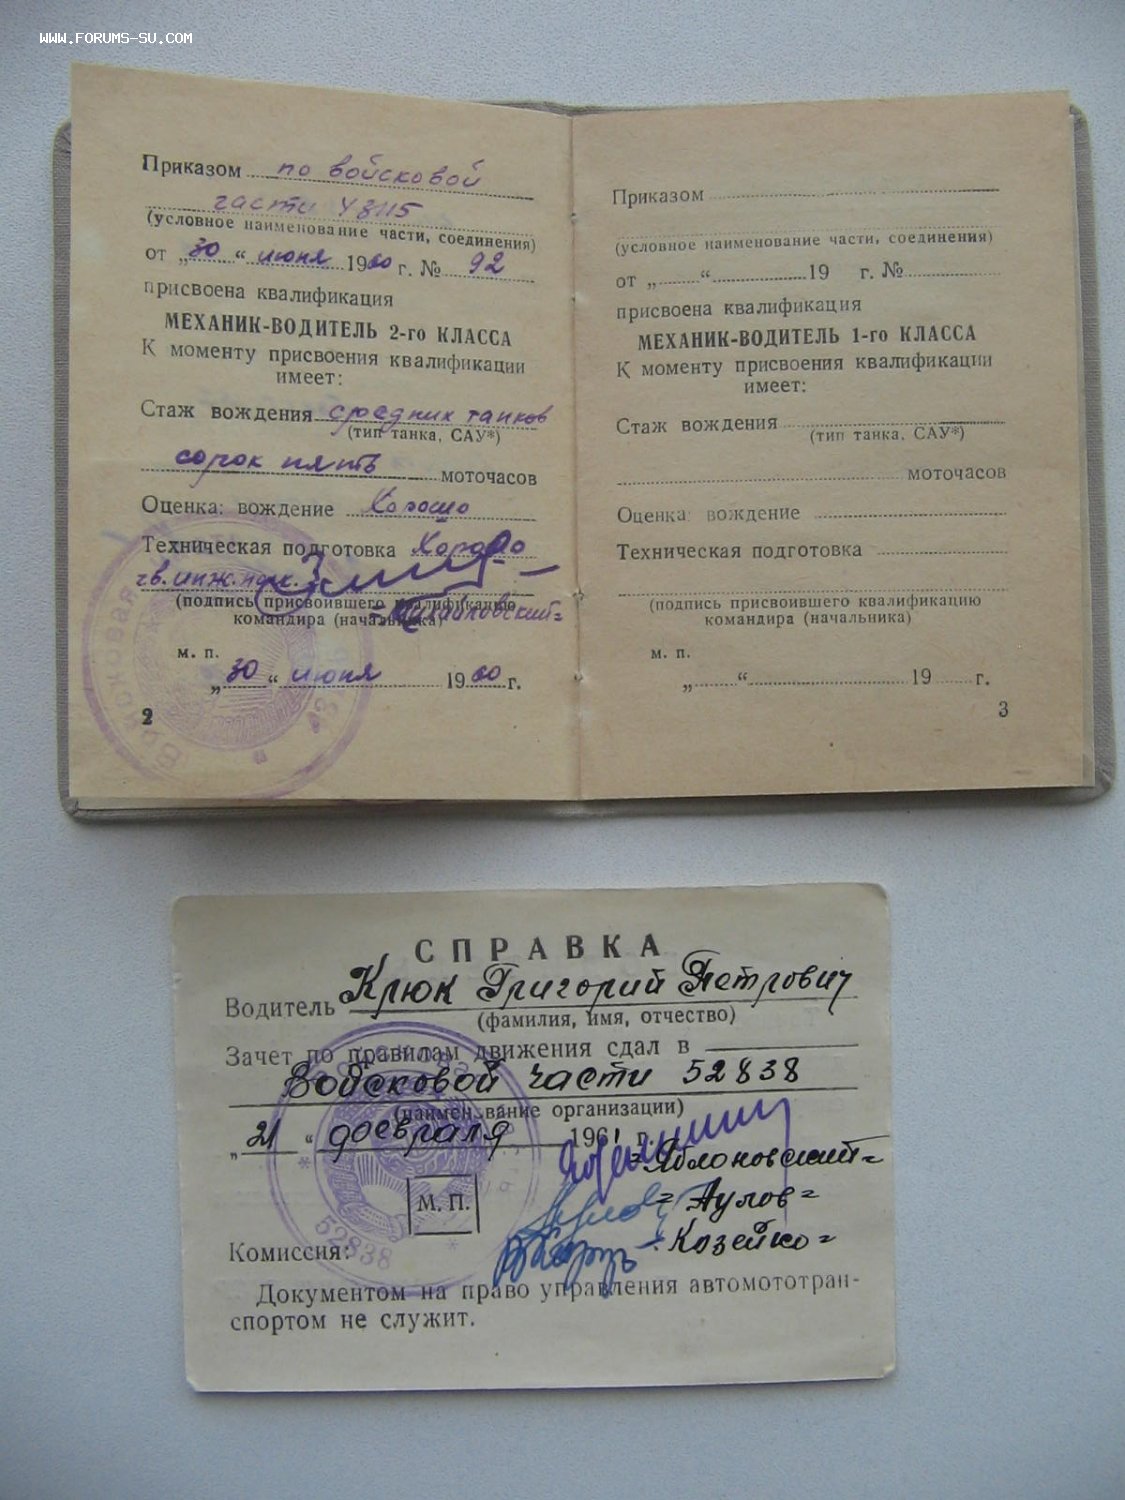 WWW.FORUMS-SU.COM
Приказом по войсковой
части 43115
(условное наименование части, соединения)
от „30“ июня 1960 г. № 92
присвоена квалификация
МЕХАНИК-ВОДИТЕЛЬ 2-го КЛАССА
К моменту присвоения квалификации
имеет:
Стаж вождения средних танков
(тип танка, САУ*)
сорок пять моточасов
Оценка: вождение Хорошо
Техническая подготовка Хорошо
гв. инж. полк.
(подпись присвоившего квалификацию
командира (начальника)
=Михайловский=
м. п.
„30“ июня 1960 г.
2
Приказом
(условное наименование части, соединения)
от „ “ 19 г. №
присвоена квалификация
МЕХАНИК-ВОДИТЕЛЬ 1-го КЛАССА
К моменту присвоения квалификации
имеет:
Стаж вождения
(тип танка, САУ*)
моточасов
Оценка: вождение
Техническая подготовка
(подпись присвоившего квалификацию
командира (начальника)
м. п.
„ “ 19 г.
3
СПРАВКА
Водитель Крюк Григорий Петрович
(фамилия, имя, отчество)
Зачет по правилам движения сдал в
Войсковой части 52838
(наименование организации)
„21“ февраля 1961 г.
=Яблоновский=
М. П.
=Аулов=
Комиссия:
-Козейко=
52838
Документом на право управления автомототран-
спортом не служит.